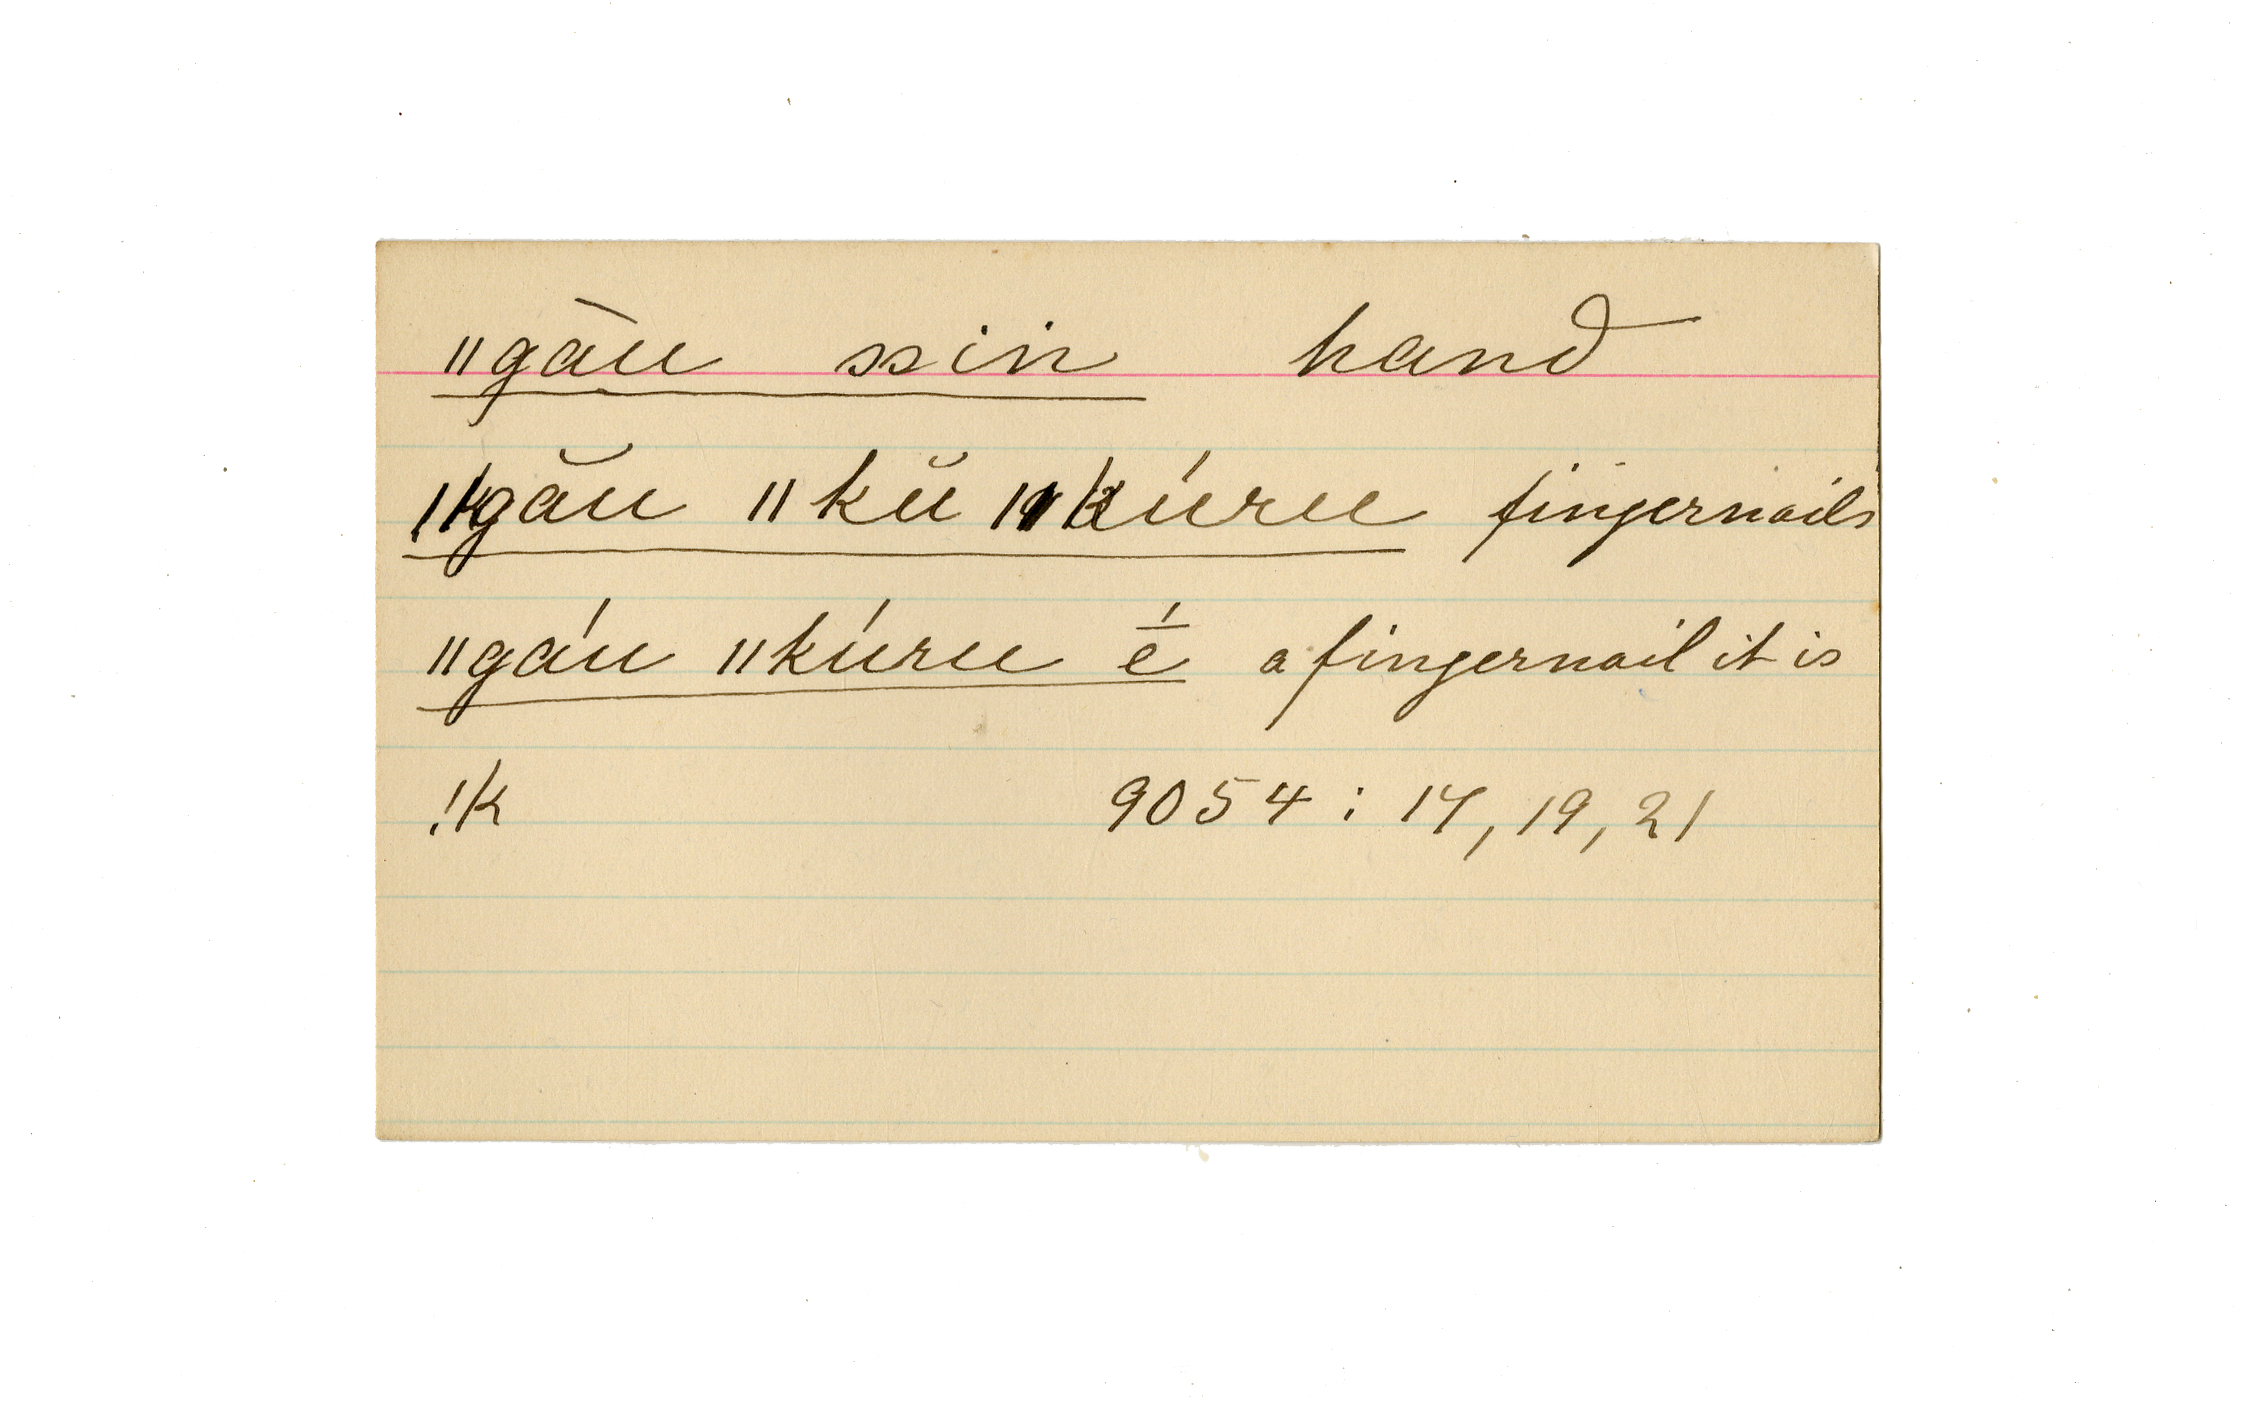 ǁgàu ssin hand
ǁgău ǁkŭ ǁkúru fingernails
ǁgáu ǁkúru ḗ a fingernail it is
!k 9054 : 17, 19, 21